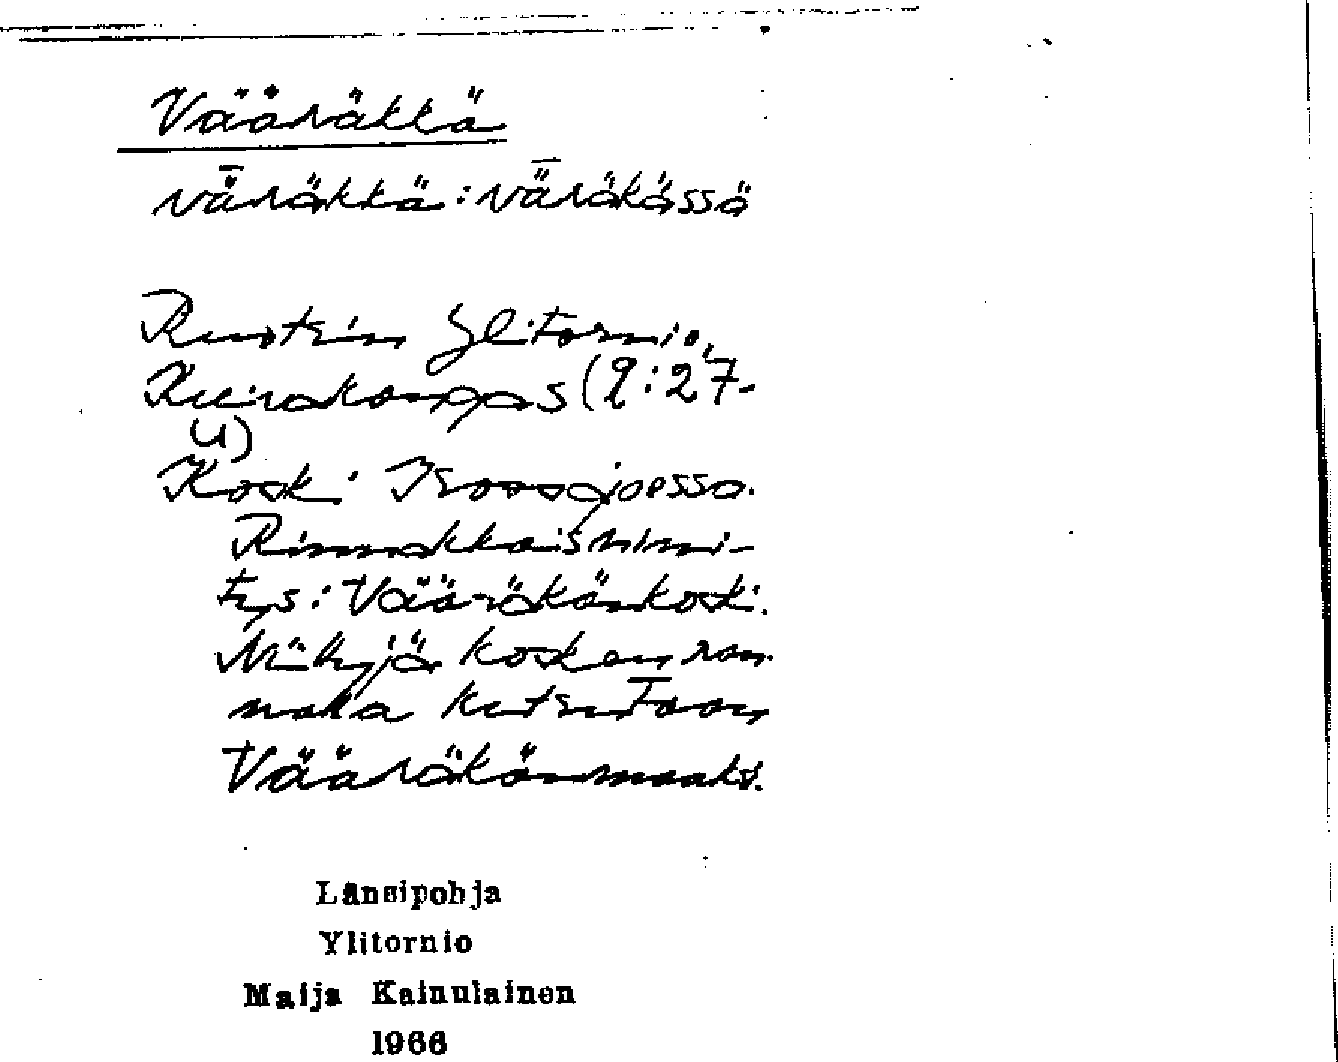 Vääräkkä
vǟräkkä : vǟräkässä
Ruotsin Ylitornio,
Kuivakangas (9:27-
U)
Koski Isossajoessa.
Rinnakkaisnimi-
tys: Vääräkänkoski.
Niittyjä kosken ran-
nalla kutsutaan
Vääräkänmaaksi.
Länsipohja
Ylitornio
Maija Kainulainen
1966